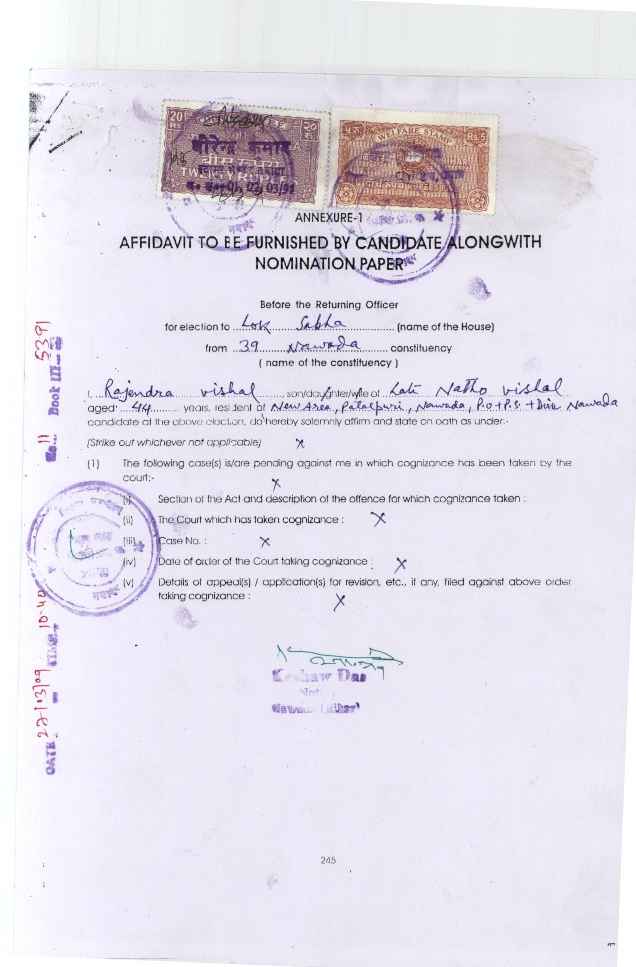 20
RS
२०
रु
धीरेन्द्र कुमार
बीस रुपया
TWENTY RUPEES
WELFARE STAMP
ANNEXURE-1
AFFIDAVIT TO BE FURNISHED BY CANDIDATE ALONGWITH
NOMINATION PAPER
Before the Returning Officer
for election to ..Lok......Sabha................ (name of the House)
from ..39......Nawada........ constituency
( name of the constituency )
I,...Rajendra vishal.......... son/daughter/wife of .Late Natho vishal
aged ..44.......... years, resident of New Area, Patalpuri, Nawada, P.o+P.S. + Dist Nawada
candidate at the above election, do hereby solemnly affirm and state on oath as under:-
(Strike out whichever not applicable) X
(1) The following case(s) is/are pending against me in which cognizance has been taken by the
court:- X
(i) Section of the Act and description of the offence for which cognizance taken :
(ii) The Court which has taken cognizance : X
(iii) Case No. : X
(iv) Date of order of the Court taking cognizance : X
(v) Details of appeal(s) / application(s) for revision, etc., if any, filed against above order
taking cognizance : X
Keshaw Das
DATE 22/13/09 TIME 10-40
No. 11 Book III 5391
245